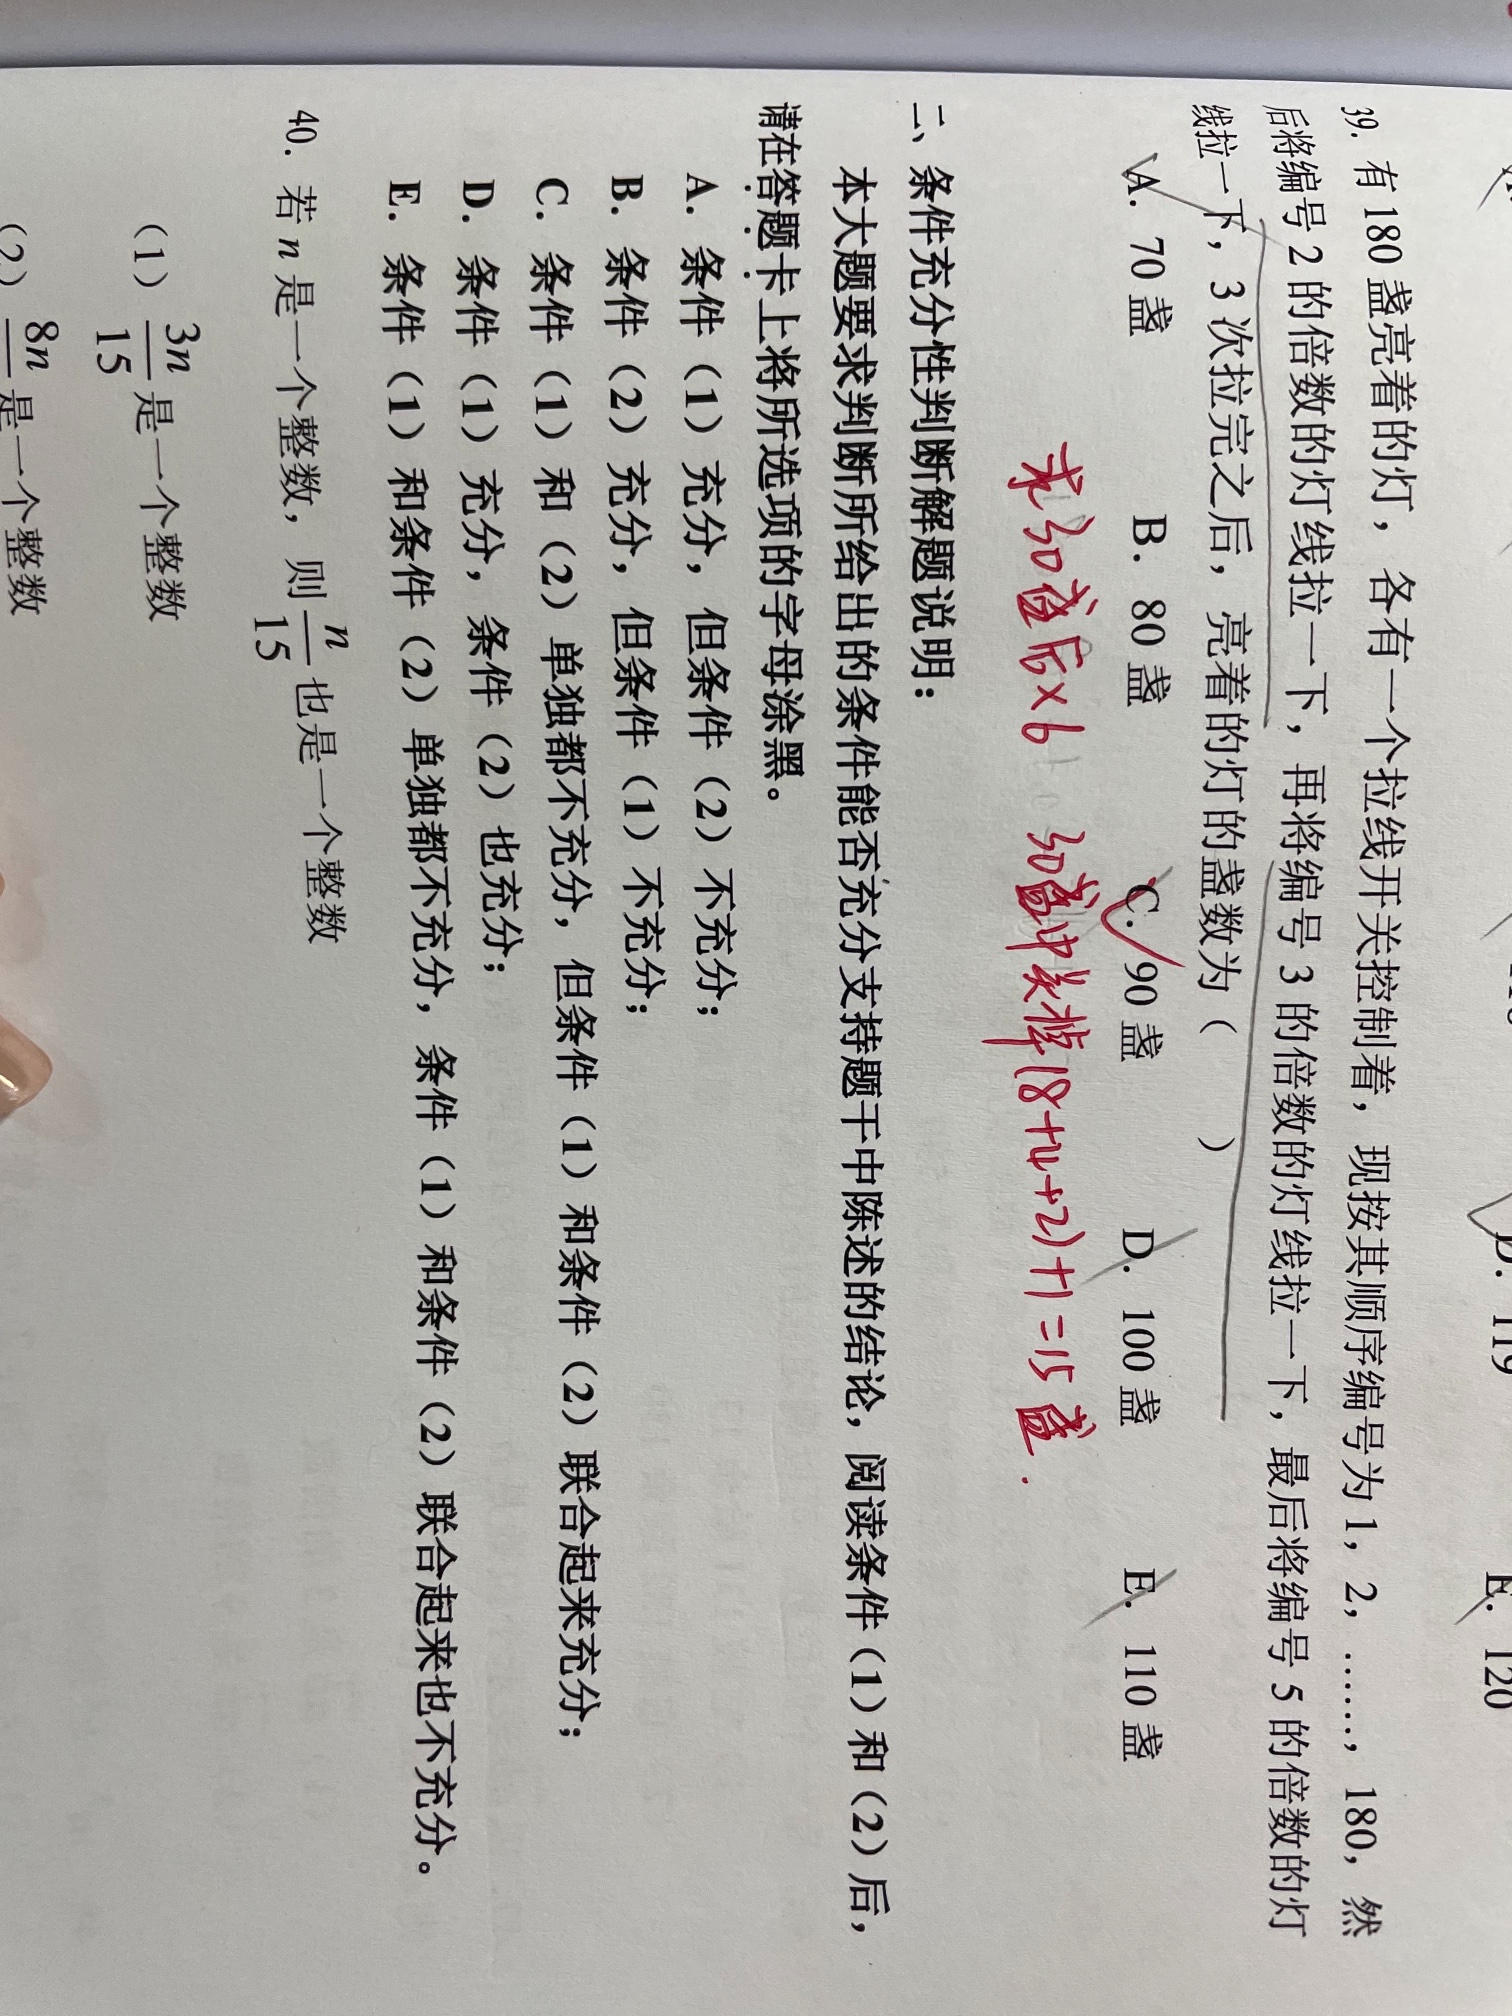 D. 119
E. 120
39. 有 180 盏亮着的灯，各有一个拉线开关控制着，现按其顺序编号为 1，2，……，180，然
后将编号 2 的倍数的灯线拉一下，再将编号 3 的倍数的灯线拉一下，最后将编号 5 的倍数的灯
线拉一下，3 次拉完之后，亮着的灯的盏数为（ ）
A. 70 盏 B. 80 盏 C. 90 盏 D. 100 盏 E. 110 盏
求30盏后×6 30盏中关掉(8+4+2)+1=15盏.
二、条件充分性判断解题说明：
本大题要求判断所给出的条件能否充分支持题干中陈述的结论，阅读条件（1）和（2）后，
请在答题卡上将所选项的字母涂黑。
A. 条件（1）充分，但条件（2）不充分；
B. 条件（2）充分，但条件（1）不充分；
C. 条件（1）和（2）单独都不充分，但条件（1）和条件（2）联合起来充分；
D. 条件（1）充分，条件（2）也充分；
E. 条件（1）和条件（2）单独都不充分，条件（1）和条件（2）联合起来也不充分。
40. 若 n 是一个整数，则 n/15 也是一个整数
（1）3n/15 是一个整数
（2）8n 是一个整数